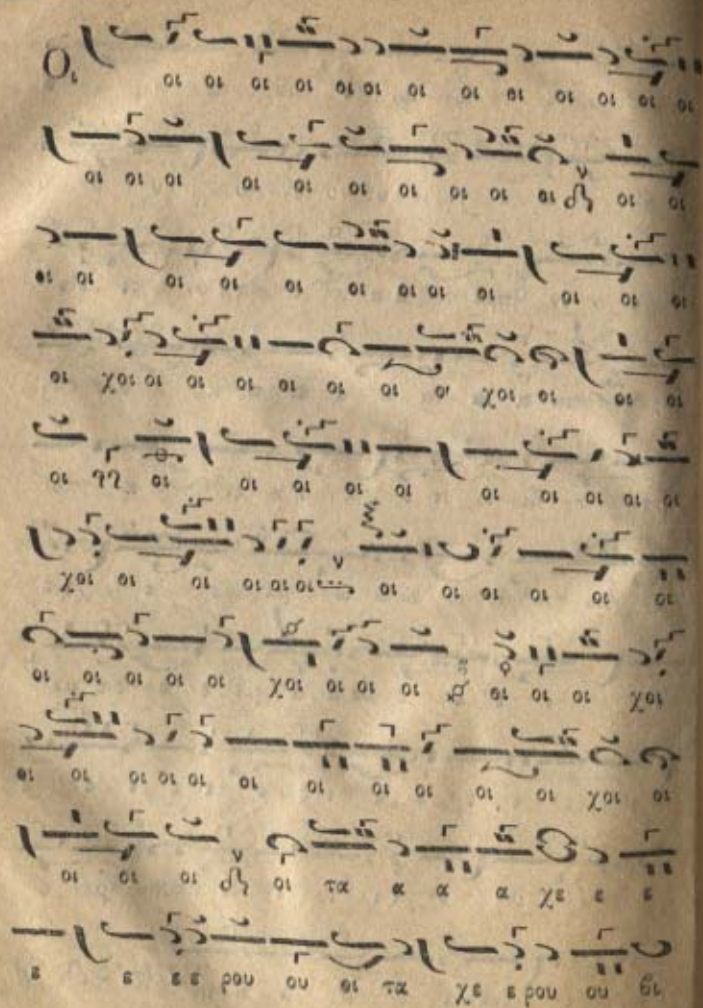 Οι οι οι οι οι οι οι οι οι οι οι οι οι οι
οι οι οι οι οι οι οι οι οι οι οι οι
οι οι οι οι οι οι οι οι οι οι οι οι
οι χοι οι οι οι οι οι οι οι χοι οι οι οι
οι οι οι οι οι οι οι οι οι οι οι
χοι οι οι οι οι οι οι οι οι οι οι οι
οι οι οι οι οι χοι οι οι οι οι οι οι χοι
οι οι οι οι οι οι οι οι οι οι οι χοι οι
οι οι οι οι τα α α α χε ε ε
ε ε ε ε ρου ου οι τα χε ε ρου ου βι